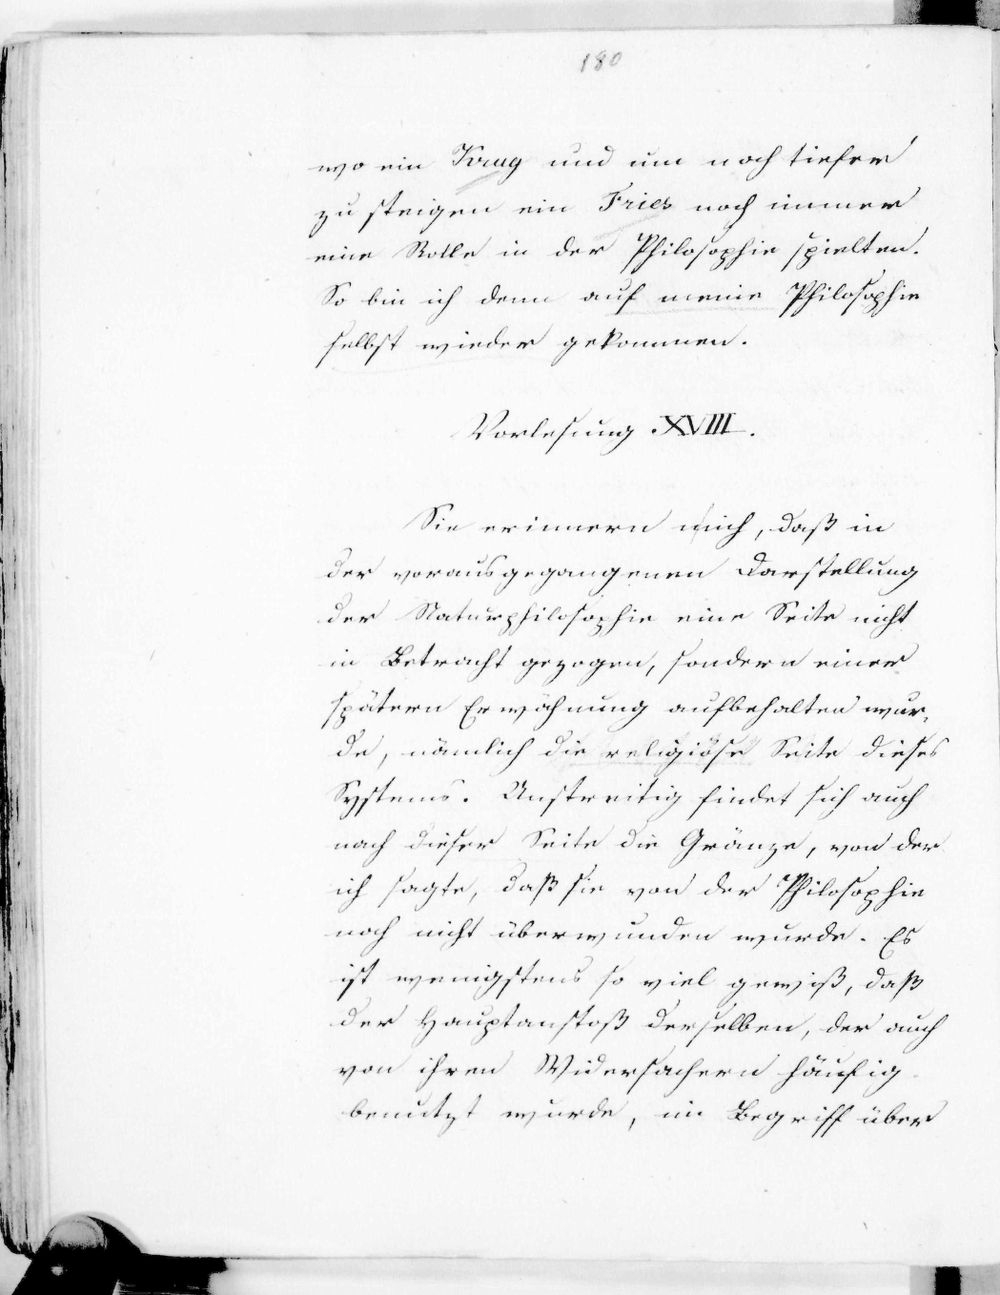 180
wo ein Krug und um noch tiefer
zu steigen ein Fries noch immer
eine Rolle in der Philosophie spielten.
So bin ich denn auf meine Philosophie
selbst wieder gekommen.
Vorlesung XVIII.
Sie erinnern mich, daß in
der vorausgegangenen Darstellung
der Naturphilosophie eine Seite nicht
in Betracht gezogen, sondern einer
spätern Erwähnung aufbehalten wur-
de, nämlich die religiöse Seite dieses
Systems. Unstreitig findet sich auch
nach dieser Seite die Gränze, von der
ich sagte, daß sie von der Philosophie
noch nicht überwunden wurde. Es
ist wenigstens so viel gewiß, daß
der Hauptanstoß derselben, der auch
von ihren Widersachern häufig
benutzt wurde, im Begriff über